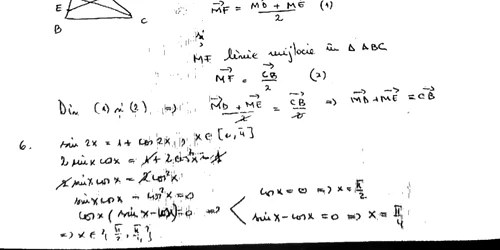 MF⃗ = (MD⃗ + ME⃗)/2 (1)
E
B
C
și
MF linie mijlocie în Δ ABC
MF⃗ = CB⃗/2 (2)
Din (1) și (2) ⇒ (MD⃗ + ME⃗)/2 = CB⃗/2 ⇒ MD⃗ + ME⃗ = CB⃗
6. sin 2x = 1 + cos 2x, x ∈ [0, π]
2 sin x cos x = 1 + 2 cos² x − 1
2 sin x cos x = 2 cos² x
sin x cos x − cos² x = 0
cos x (sin x − cos x) = 0 ⇒
cos x = 0 ⇒ x = π/2
sin x − cos x = 0 ⇒ x = π/4
⇒ x ∈ {π/2, π/4}